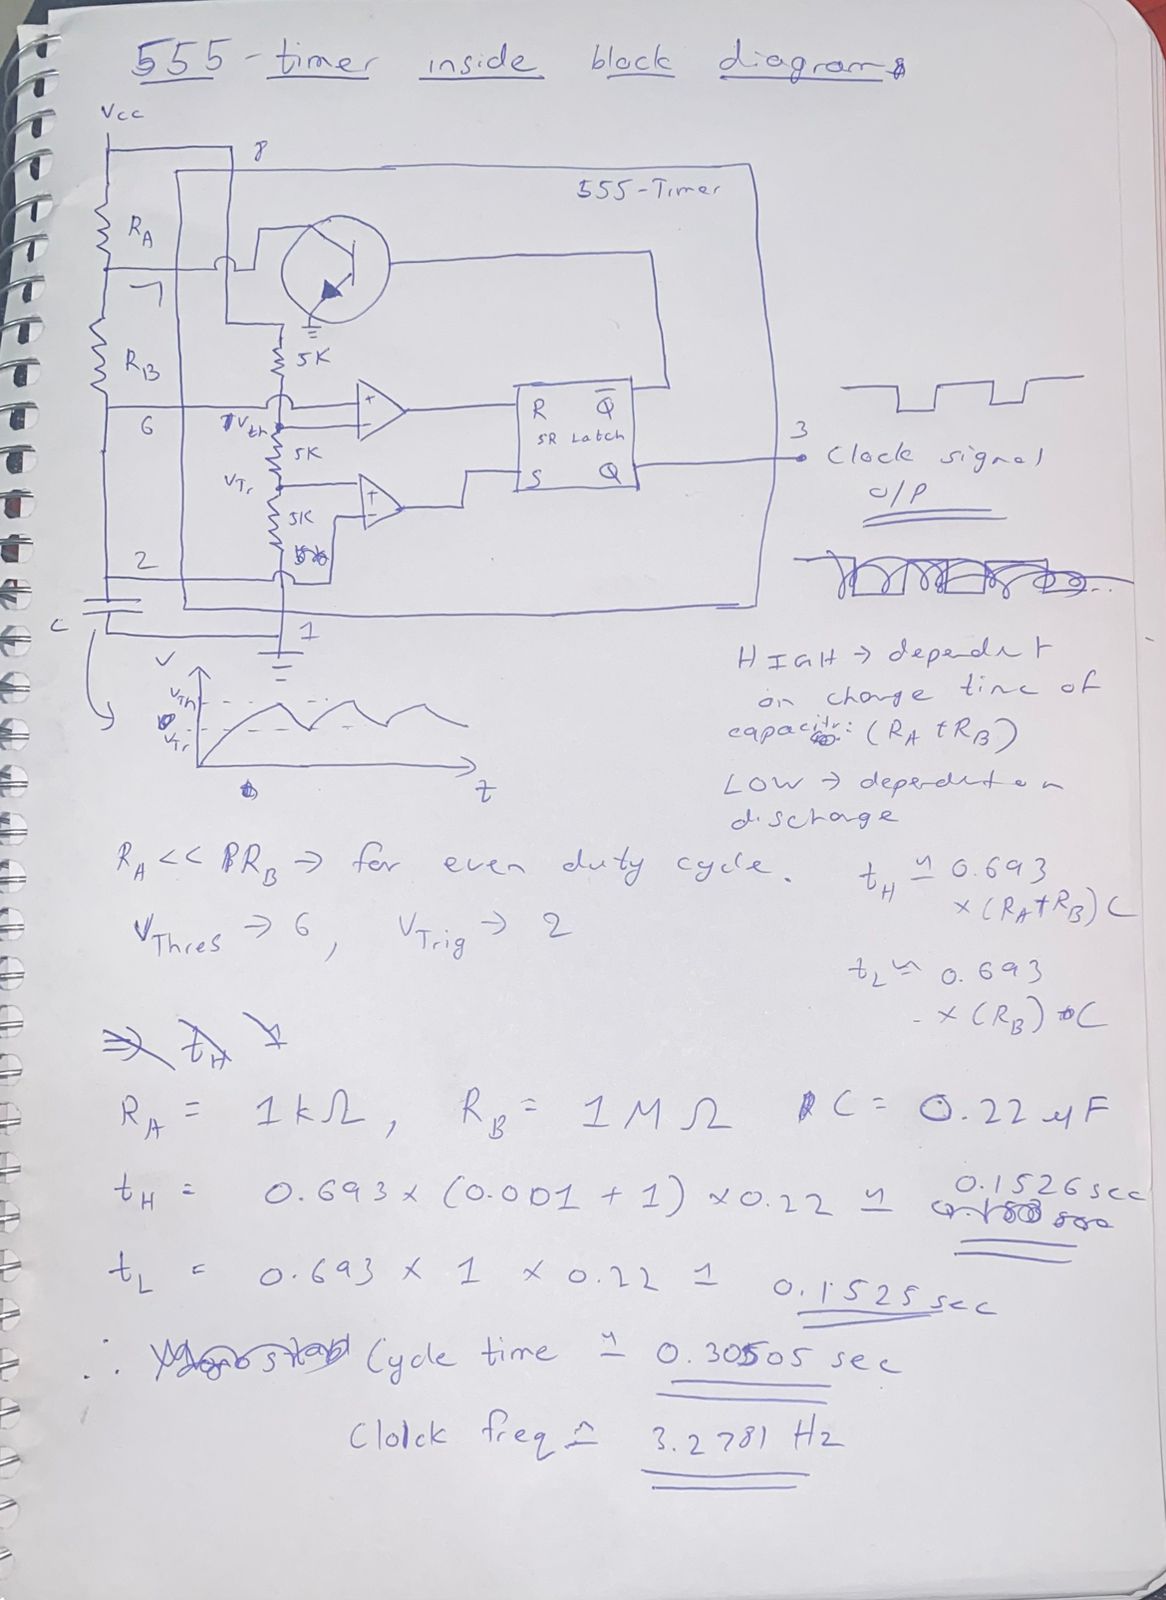 555-timer inside block diagram
Vcc
8
555-Timer
RA
7
5K
RB
6
Vth
R Q̅
SR Latch
S Q
3
Clock signal
O/P
5K
VTr
5K
2
C
1
V
VTh
VTr
t
HIGH → dependent
on charge time of
capacitr: (RA + RB)
LOW → dependent on
discharge
RA << RB → for even duty cycle.
tH ≃ 0.693
× (RA+RB) C
VThres → 6, VTrig → 2
tL ≃ 0.693
× (RB) C
RA = 1kΩ, RB = 1MΩ C = 0.22 μF
tH = 0.693 × (0.001 + 1) × 0.22 ≃ 0.1526 sec
tL = 0.693 × 1 × 0.22 ≃ 0.1525 sec
∴ Cycle time ≃ 0.30505 sec
Clolck freq ≃ 3.2781 Hz